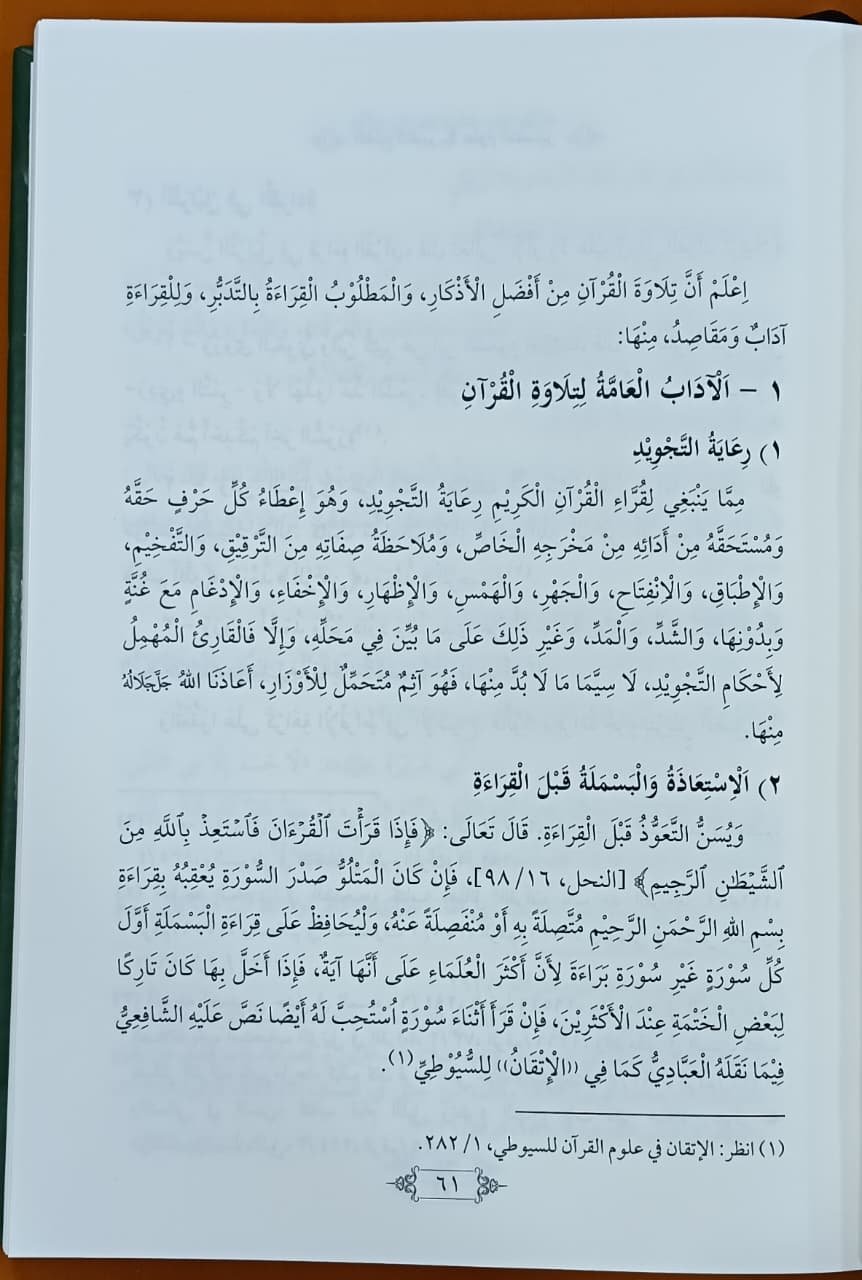 اِعْلَمْ أَنَّ تِلَاوَةَ الْقُرْآنِ مِنْ أَفْضَلِ الْأَذْكَارِ، وَالْمَطْلُوبُ الْقِرَاءَةُ بِالتَّدَبُّرِ، وَلِلْقِرَاءَةِ
آدَابٌ وَمَقَاصِدُ، مِنْهَا:
١ – اَلْآدَابُ الْعَامَّةُ لِتِلَاوَةِ الْقُرْآنِ
١) رِعَايَةُ التَّجْوِيْدِ
مِمَّا يَنْبَغِي لِقُرَّاءِ الْقُرْآنِ الْكَرِيْمِ رِعَايَةُ التَّجْوِيْدِ، وَهُوَ إِعْطَاءُ كُلِّ حَرْفٍ حَقَّهُ
وَمُسْتَحَقَّهُ مِنْ أَدَائِهِ مِنْ مَخْرَجِهِ الْخَاصِّ، وَمُلَاحَظَةُ صِفَاتِهِ مِنَ التَّرْقِيْقِ، وَالتَّفْخِيْمِ،
وَالْإِطْبَاقِ، وَالْاِنْفِتَاحِ، وَالْجَهْرِ، وَالْهَمْسِ، وَالْإِظْهَارِ، وَالْإِخْفَاءِ، وَالْإِدْغَامِ مَعَ غُنَّةٍ
وَبِدُوْنِهَا، وَالشَّدِّ، وَالْمَدِّ، وَغَيْرِ ذٰلِكَ عَلَى مَا بُيِّنَ فِي مَحَلِّهِ، وَإِلَّا فَالْقَارِئُ الْمُهْمِلُ
لِأَحْكَامِ التَّجْوِيْدِ، لَا سِيَّمَا مَا لَا بُدَّ مِنْهَا، فَهُوَ آثِمٌ مُتَحَمِّلٌ لِلْأَوْزَارِ، أَعَاذَنَا اللهُ جَلَّ جَلَالُهُ
مِنْهَا.
٢) اَلْاِسْتِعَاذَةُ وَالْبَسْمَلَةُ قَبْلَ الْقِرَاءَةِ
وَيُسَنُّ التَّعَوُّذُ قَبْلَ الْقِرَاءَةِ. قَالَ تَعَالَى: ﴿فَإِذَا قَرَأْتَ ٱلْقُرْءَانَ فَٱسْتَعِذْ بِٱللَّهِ مِنَ
ٱلشَّيْطَٰنِ ٱلرَّجِيمِ﴾ [النحل، ١٦/ ٩٨]، فَإِنْ كَانَ الْمَتْلُوُّ صَدْرَ السُّوْرَةِ يُعْقِبُهُ بِقِرَاءَةِ
بِسْمِ اللهِ الرَّحْمَنِ الرَّحِيْمِ مُتَّصِلَةً بِهِ أَوْ مُنْفَصِلَةً عَنْهُ، وَلْيُحَافِظْ عَلَى قِرَاءَةِ الْبَسْمَلَةِ أَوَّلَ
كُلِّ سُوْرَةٍ غَيْرِ سُوْرَةِ بَرَاءَةَ لِأَنَّ أَكْثَرَ الْعُلَمَاءِ عَلَى أَنَّهَا آيَةٌ، فَإِذَا أَخَلَّ بِهَا كَانَ تَارِكًا
لِبَعْضِ الْخَتْمَةِ عِنْدَ الْأَكْثَرِيْنَ، فَإِنْ قَرَأَ أَثْنَاءَ سُوْرَةٍ اُسْتُحِبَّ لَهُ أَيْضًا نَصَّ عَلَيْهِ الشَّافِعِيُّ
فِيْمَا نَقَلَهُ الْعَبَّادِيُّ كَمَا فِي ((الْإِتْقَانُ)) لِلسُّيُوْطِيِّ(١).
(١) انظر: الإتقان في علوم القرآن للسيوطي، ١/ ٢٨٢.
٦١